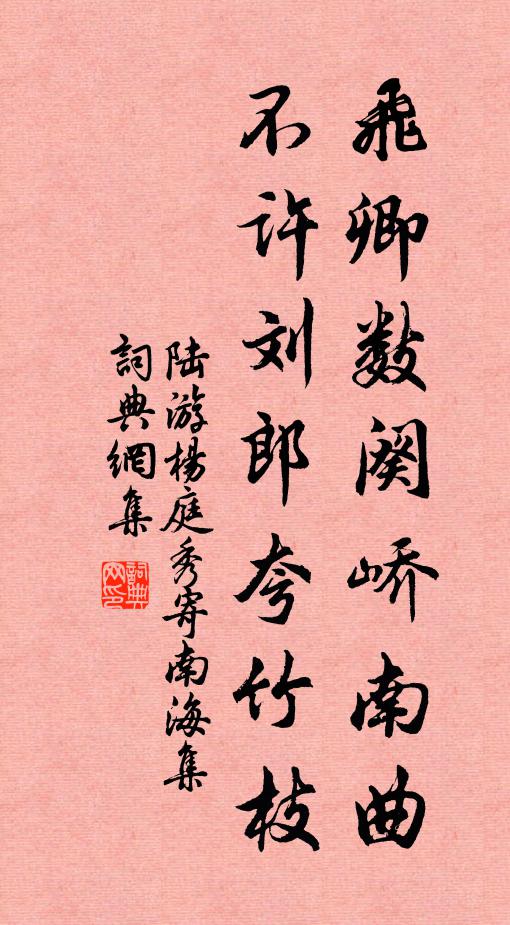 飛卿數阕峤南曲
不许刘郎夸竹枝
陆游楊庭秀寄南海集
詞典網集
詞典
网印